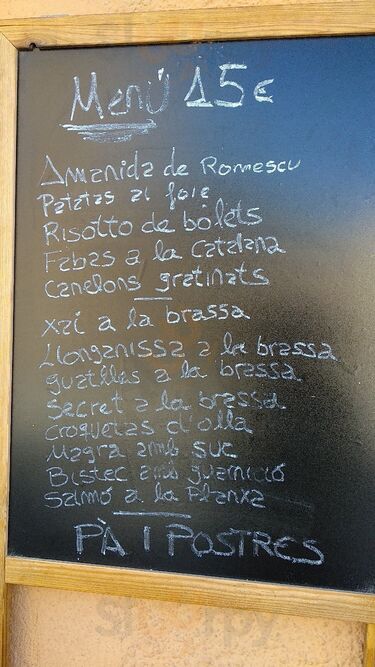 Menú 15€
Amanida de Romescu
Patatas al foie
Risotto de bolets
Fabas a la catalana
Canelons gratinats
Xai a la brassa
Llonganissa a la brassa
guatlles a la brassa
Secret a la brassa
croquetas d'olla
Magra amb suc
Bistec amb guarnició
Salmó a la Planxa
PÀ I POSTRES